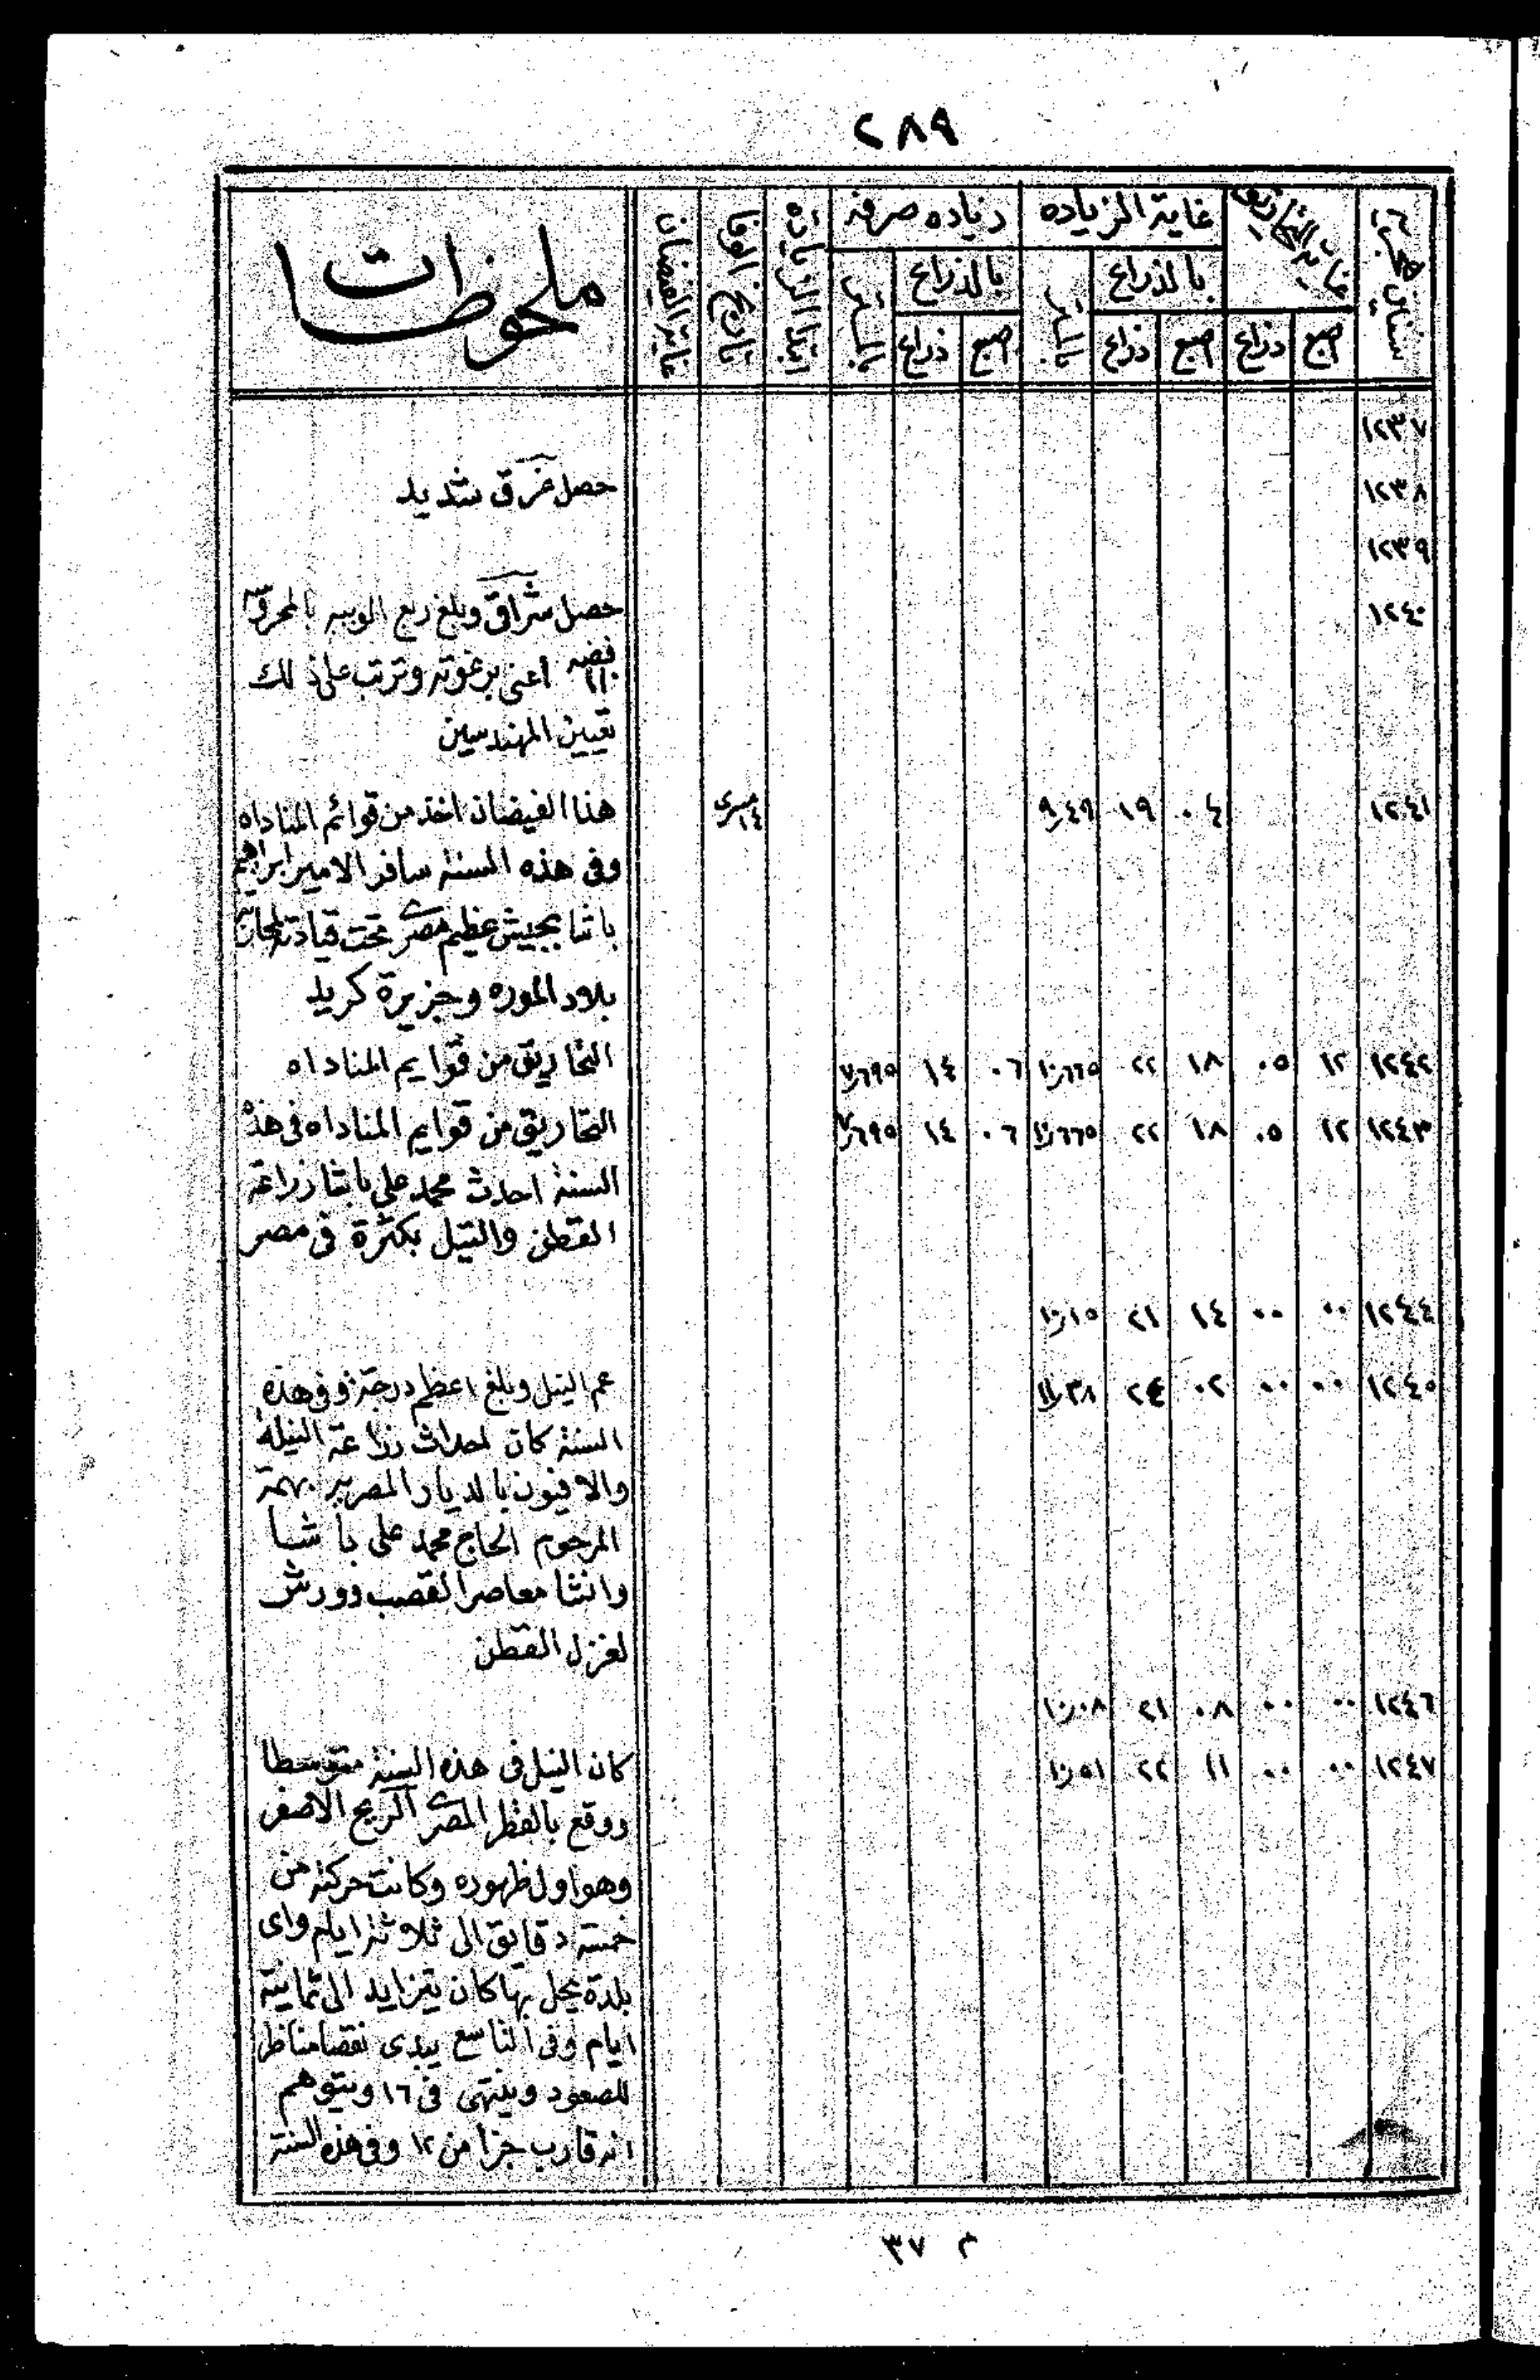 ٢٨٩
سنين هجرية | غاية التحاريق | غاية الزيادة | زياده صرفه | ابتدا الزيادة | تاريخ الوفا | غاية الفيضان | ملحوظات
بالذراع | بالمتر | بالذراع | بالمتر
اصبع | ذراع | اصبع | ذراع | اصبع | ذراع
١٢٣٧
١٢٣٨ | حصل غرق شديد
١٢٣٩
١٢٤٠ | حصل شراقى وبلغ ربع الويبه بالمحروسة
فضه ١١ اعنى برغوته وترتب على ذلك
تعيين المهندسين
١٢٤١ | ٠٤ | ١٩ | ٩٫٤٩ | مسرى ١٤ | هذا الفيضان اخذ من قوائم المناداه
وفى هذه السنة سافر الامير ابراهيم
باشا بجيش عظيم مصرى تحت قيادته
بلاد الموره وجزيرة كريد
١٢٤٢ | ١٢ | ٠٥ | ١٨ | ٢٢ | ١٠٫٦٦٥ | ٠٦ | ١٤ | ٧٫٦٩٥ | التحاريق من قوايم المناداه
١٢٤٣ | ١٢ | ٠٥ | ١٨ | ٢٢ | ١٠٫٦٦٥ | ٠٦ | ١٤ | ٧٫٦٩٥ | التحاريق من قوايم المناداه فى هذه
السنة احدث محمد على باشا زراعة
القطن والتيل بكثرة فى مصر
١٢٤٤ | ٠٠ | ٠٠ | ١٤ | ٢١ | ١٠٫١٥
١٢٤٥ | ٠٠ | ٠٠ | ٠٢ | ٢٤ | ١١٫٣٨ | عم النيل وبلغ اعظم درجة وفى هذه
السنة كان احداث زراعة النيلة
والافيون بالديار المصرية بهمة
المرحوم الحاج محمد على باشا
وانشا معاصر القصب وورش
لغزل القطن
١٢٤٦ | ٠٠ | ٠٠ | ٠٨ | ٢١ | ١٠٫٠٨
١٢٤٧ | ٠٠ | ٠٠ | ١١ | ٢٢ | ١٠٫٥١ | كان النيل فى هذه السنة متوسطا
ووقع بالقطر المصرى الريح الاصفر
وهو اول ظهوره وكانت حركته من
خمسة دقايق الى ثلاثة ايام واى
بلدة يحل بها كان يتزايد الى ثمانية
ايام وفى التاسع يبدى نقصا مناظرا
للصعود وينتهى فى ١٦ ويتوهم
انه قارب جزأ من ١٢ وفى هذه السنة
م ٣٧